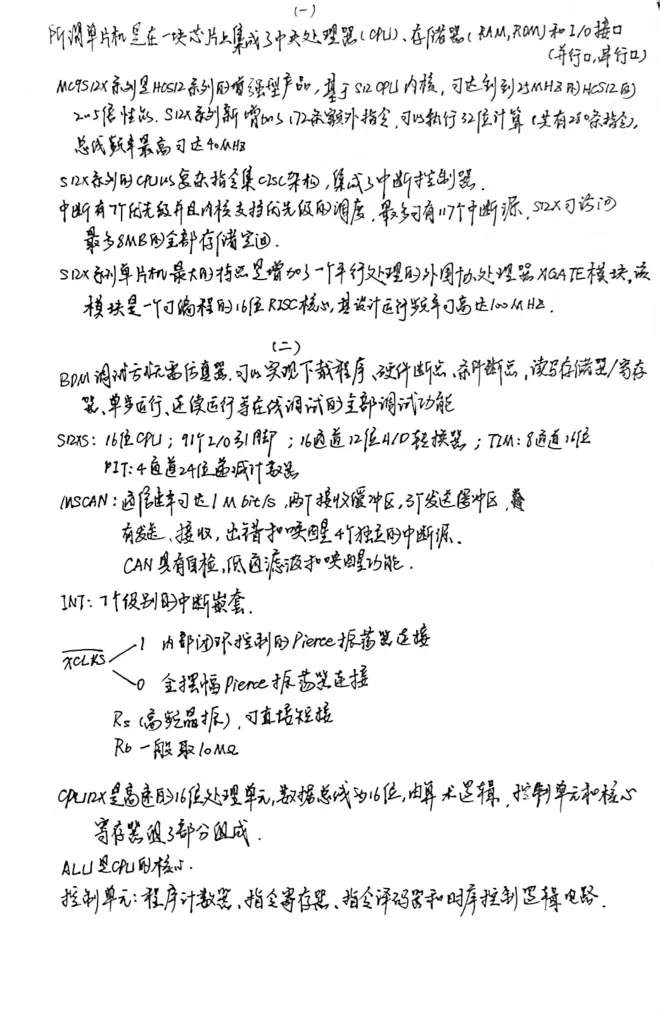 (一)
所谓单片机是在一块芯片上集成了中央处理器(CPU)、存储器(RAM,ROM)和I/O接口
(并行口,串行口)
MC9S12X系列是HCS12系列的增强型产品,基于S12 CPU内核,可达到25MHZ的HCS12的
2~5倍性能. S12X系列新增加了172条额外指令,可以执行32位计算(共有280条指令),
总线频率最高可达40MHz
S12X系列的CPU以复杂指令集CISC架构,集成了中断控制器.
中断有7个优先级并且内核支持优先级的调度,最多可有117个中断源,S12X可访问
最多8MB的全部存储空间.
S12X系列单片机最大的特点是增加了一个平行处理的外围协处理器XGATE模块,该
模块是一个可编程的16位RISC核心,其设计运行频率可高达100MHZ.
(二)
BDM调试方式无需仿真器,可以实现下载程序、硬件断点、条件断点,读写存储器/寄存
器、单步运行、连续运行等在线调试的全部调试功能
S12XS:16位CPU;91个I/O引脚;16通道12位A/D转换器;TIM:8通道16位
PIT:4通道24位递减计数器
MSCAN:通信速率可达1Mbit/s,两个接收缓冲区,3个发送缓冲区,
有发送、接收,出错和唤醒4个独立的中断源.
CAN具有自检,低通滤波和唤醒功能.
INT:7个级别的中断嵌套.
XCLKS
1 内部闭环控制的Pierce振荡器连接
0 全摆幅Pierce振荡器连接
Rs(高频晶振),可直接短接
Rb一般取10MΩ
CPU12X是高速的16位处理单元,数据总线为16位,由算术逻辑,控制单元和核心
寄存器组3部分组成.
ALU是CPU的核心.
控制单元:程序计数器、指令寄存器、指令译码器和时序控制逻辑电路.